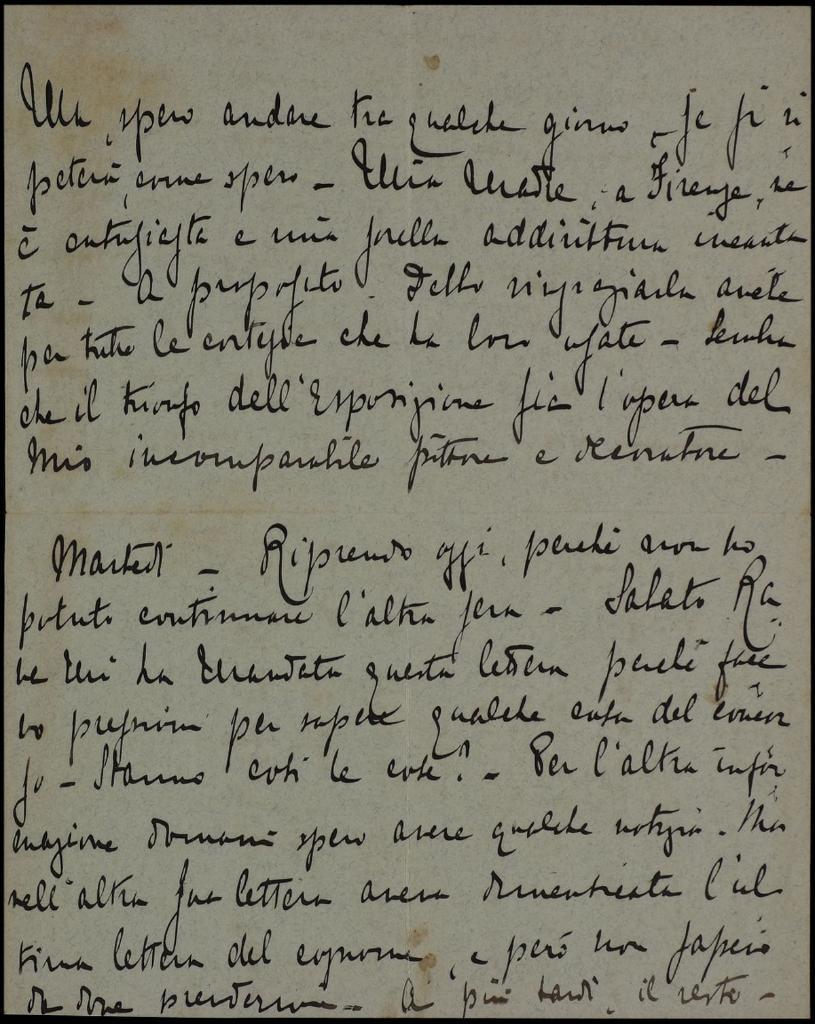 Ma, spero andare tra qualche giorno, se si ri
peterà, come spero - Mia Madre, a Firenze, ne
è entusiasta e mia sorella addirittura incanta
ta - A proposito. Debbo ringraziarla
per tutte le cortesie che ha loro usate - Sembra
che il trionfo dell'Esposizione sia l'opera del
mio incomparabile pittore e decoratore -
Martedì - Riprendo oggi, perché non ho
potuto continuare l'altra sera - Sabato Ra
ve mi ha mandata questa lettera perché face
vo pressioni per sapere qualche cosa del concor
so - Stanno così le cose? - Per l'altra infor
mazione domani spero avere qualche notizia. Ma
nell'altra sua lettera aveva dimenticata l'ul
tima lettera del cognome, e però non sapevo
da dove prendermi - A più tardi, il resto -